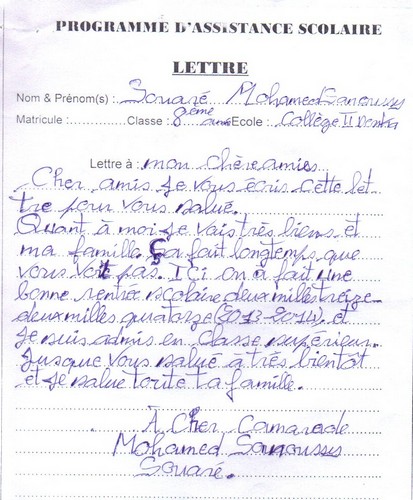 PROGRAMME D'ASSISTANCE SCOLAIRE
LETTRE
Nom & Prénom(s) : Souaré Mohamed Sanoussy
Matricule : Classe : 8ème année Ecole : Collège II Donka
Lettre à : mon chère amies
Cher amis je vous écris cette let
tre pour vous salué.
Quant à moi je vais très biens et
ma famille. Ça fait longtemps que
vous voit pas. Ici on a fait une
bonne rentrée scolaire deux milles treize
deux milles quatorze (2013-2014) et
je suis admis en classe supérieur.
Jusque vous salue à très bientôt
et je salue toute ta famille.
À Cher Camarade
Mohamed Sanoussy
Souaré.